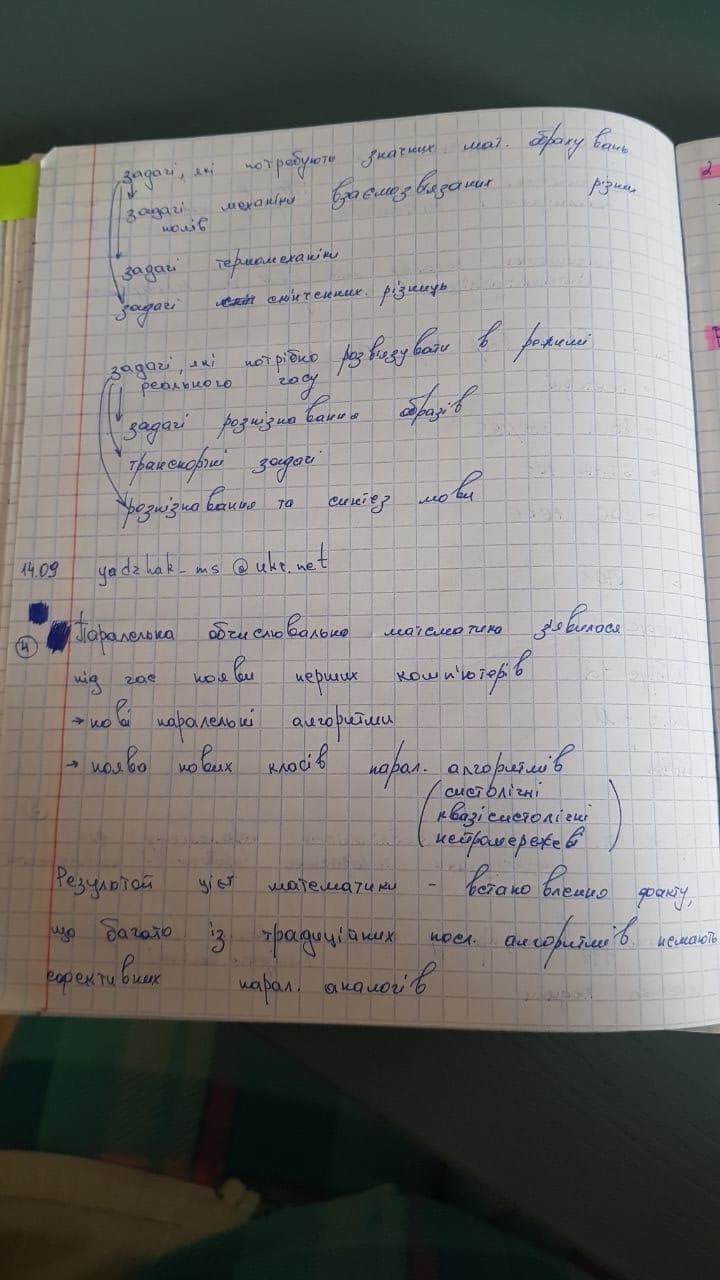 задачі, які потребують значних мат. обрахувань
задачі механіки взаємозвязаних різних
полів
задачі термомеханіки
задачі скінченних різниць
задачі, які потрібно розвязувати в режимі
реального часу
задачі розпізнавання образів
транспортні задачі
розпізнавання та синтез мови
14.09 yadzhak_ms@ukr.net
4 Паралельна обчислювальна математика з'явилася
під час появи перших комп'ютерів
→ нові паралельні алгоритми
→ поява нових класів парал. алгоритмів
(систолічні
квазісистолічні
нейромережеві)
Результат цієї математики - встановлення факту,
що багато із традиційних посл. алгоритмів немають
ефективних парал. аналогів
2